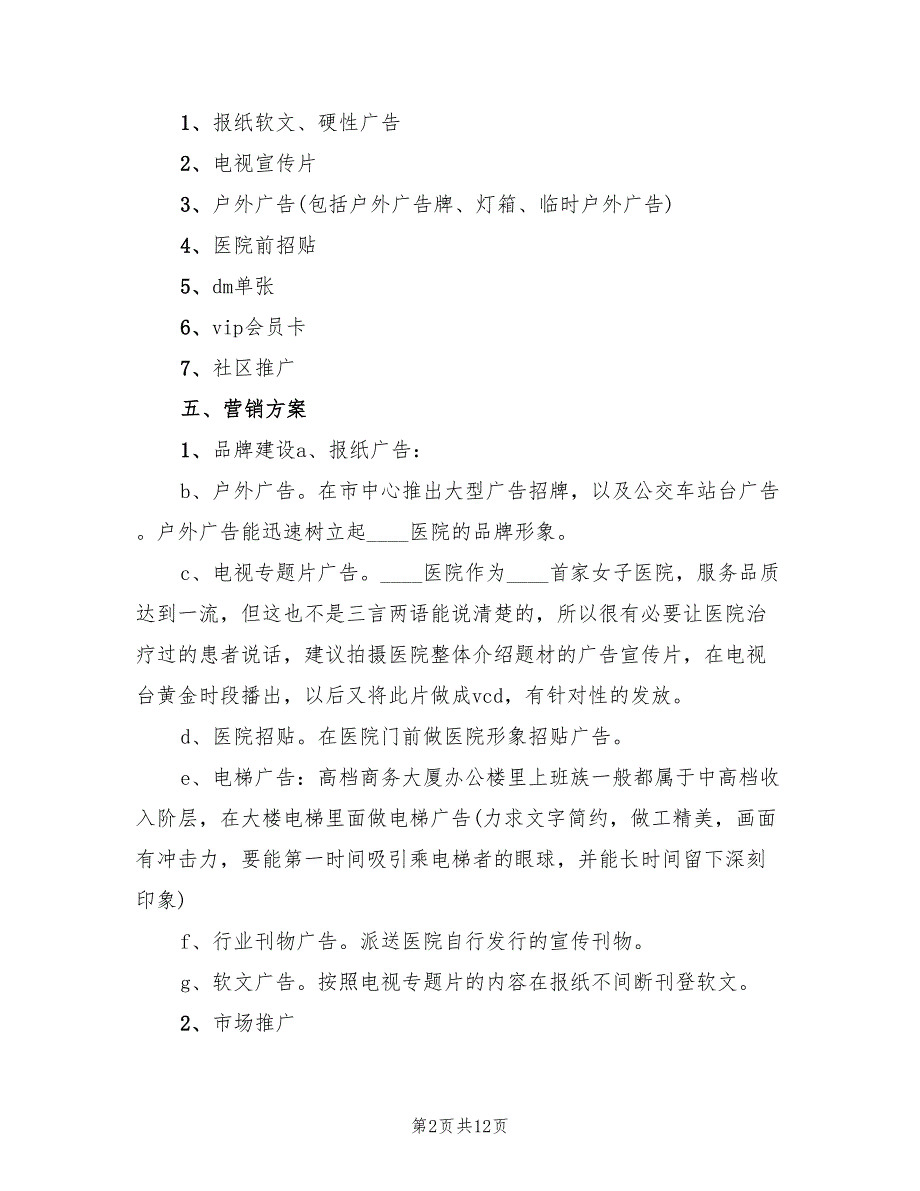 1、报纸软文、硬性广告
2、电视宣传片
3、户外广告(包括户外广告牌、灯箱、临时户外广告)
4、医院前招贴
5、dm单张
6、vip会员卡
7、社区推广
五、营销方案
1、品牌建设a、报纸广告：
b、户外广告。在市中心推出大型广告招牌，以及公交车站台广告
。户外广告能迅速树立起____医院的品牌形象。
c、电视专题片广告。____医院作为____首家女子医院，服务品质
达到一流，但这也不是三言两语能说清楚的，所以很有必要让医院治
疗过的患者说话，建议拍摄医院整体介绍题材的广告宣传片，在电视
台黄金时段播出，以后又将此片做成vcd，有针对性的发放。
d、医院招贴。在医院门前做医院形象招贴广告。
e、电梯广告：高档商务大厦办公楼里上班族一般都属于中高档收
入阶层，在大楼电梯里面做电梯广告(力求文字简约，做工精美，画面
有冲击力，要能第一时间吸引乘电梯者的眼球，并能长时间留下深刻
印象)
f、行业刊物广告。派送医院自行发行的宣传刊物。
g、软文广告。按照电视专题片的内容在报纸不间断刊登软文。
2、市场推广
第2页共12页